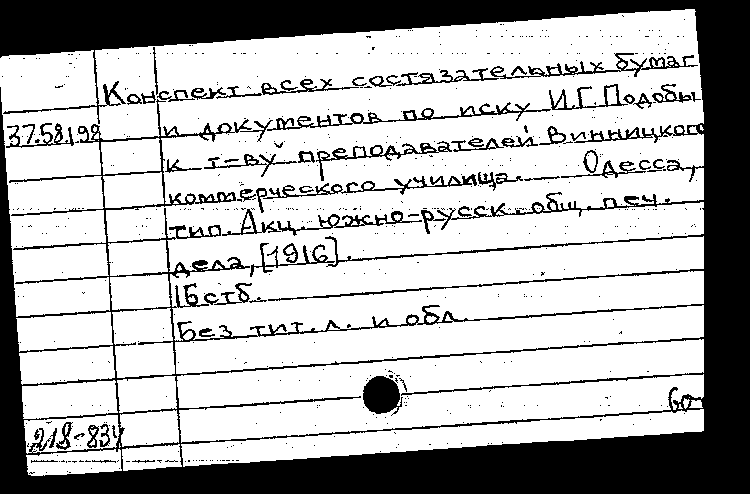 Конспект всех состязательных бумаг
37.58.198 и документов по иску И.Г. Подобы
к т-ву преподавателей Винницкого
коммерческого училища. Одесса,
тип. Акц. южно-русск. общ. печ.
дела, [1916].
16 стб.
Без тит. л. и обл.
60
218-834